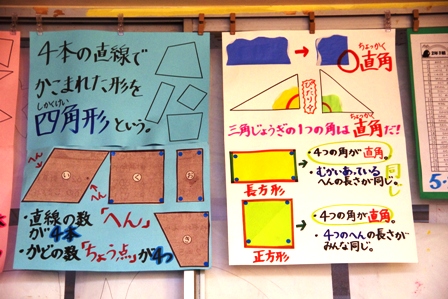 4本の直線で
かこまれた形を
しかくけい
四角形 という。
へん
へん
い
く
お
う
・直線の数「へん」
が4本
・かどの数「ちょう点」が4つ
ちょっかく
直角
ぴたり
三角じょうぎの1つの角は直角だ!
ちょっかく
長方形
・4つの角が直角。
・むかいあっている
へんの長さが同じ。
正方形
・4つの角が直角。
・4つのへんの長さが
みんな同じ。